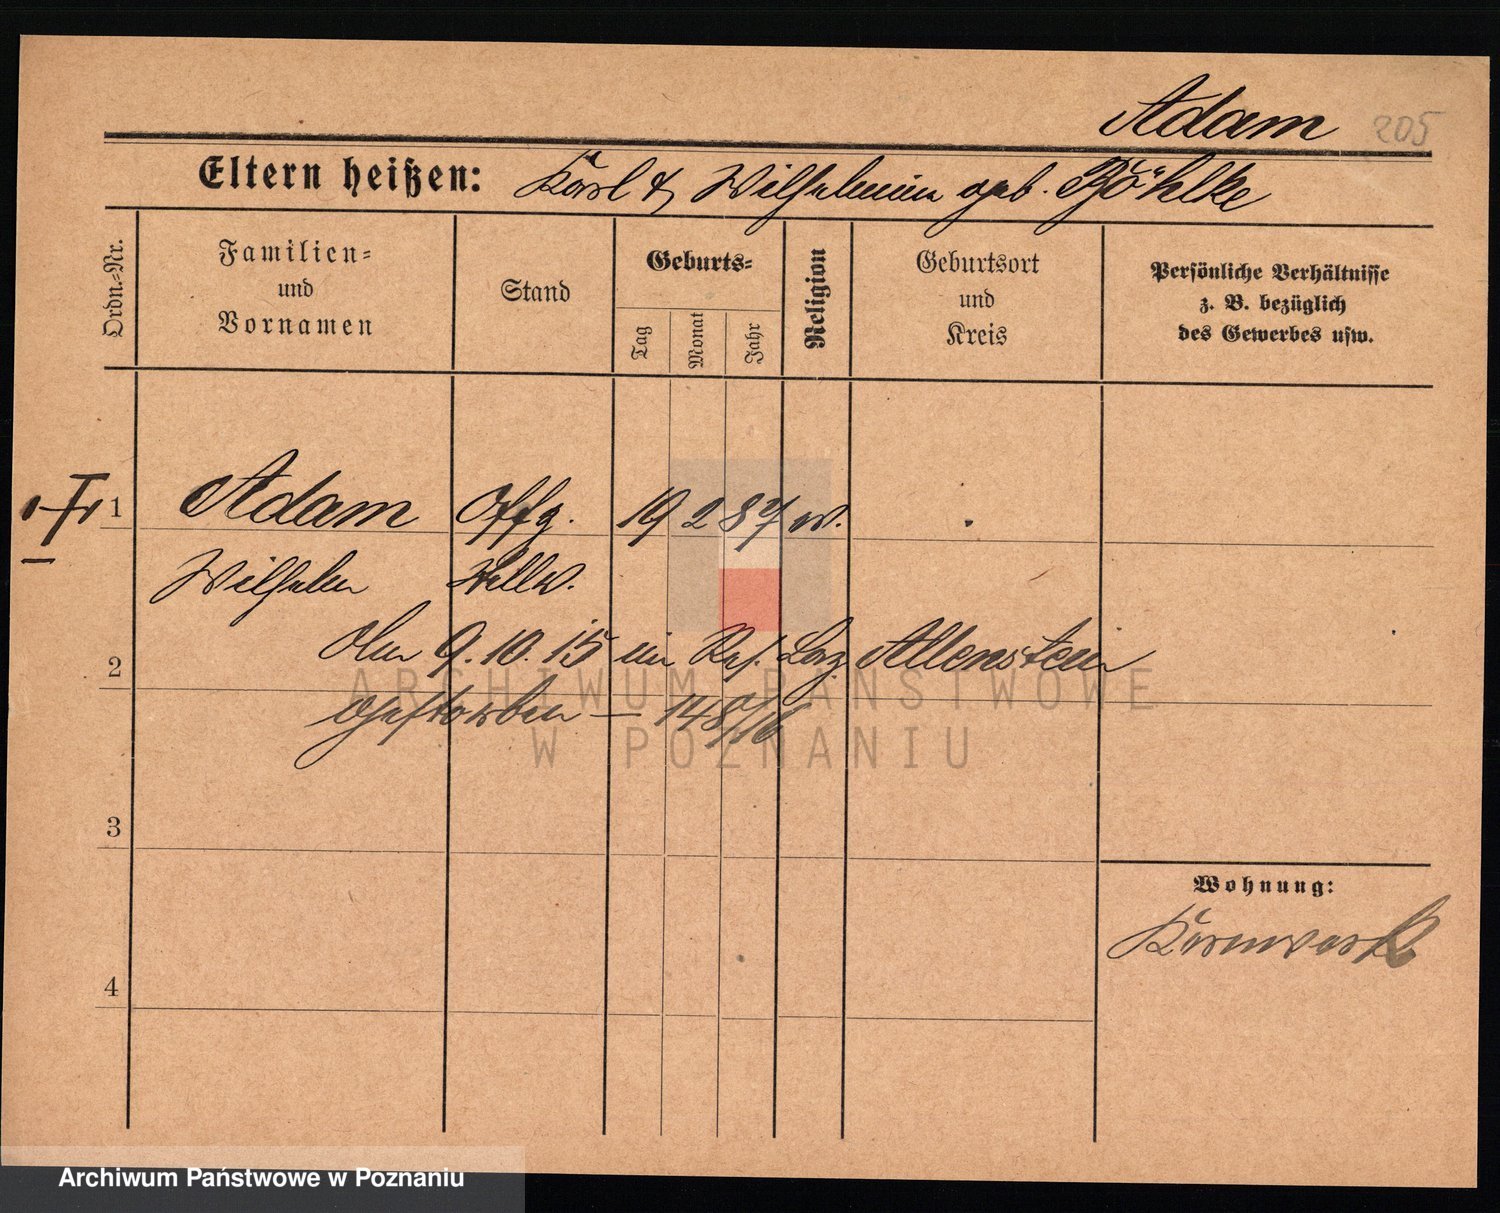 Adam 205
Eltern heißen: Karl & Wilhelmine geb. Böhlke
Ordn.-Nr.
Familien-
und
Vornamen
Stand
Geburts-
Tag
Monat
Jahr
Religion
Geburtsort
und
Kreis
Persönliche Verhältnisse
z. B. bezüglich
des Gewerbes usw.
1 Adam 19 2 87
Wilhelm
Am 9.10.15 im Res. Laz. Allenstein
2
gestorben — 148/16
3
4
Wohnung:
ARCHIWUM PAŃSTWOWE
W POZNANIU
Archiwum Państwowe w Poznaniu